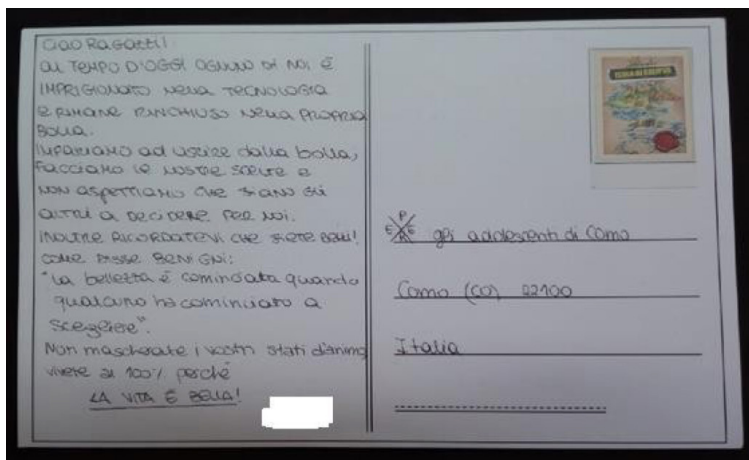 CIAO RAGAZZI!
AL TEMPO D'OGGI OGNUNO DI NOI È
IMPRIGIONATO NELLA TECNOLOGIA
E RIMANE RINCHIUSO NELLA PROPRIA
BOLLA.
IMPARIAMO ad uscire dalla bolla,
FACCIAMO le NOSTRE SCELTE e
NON ASPETTIAMO CHE SIANO GLI
ALTRI A DECIDERE PER NOI.
INOLTRE RICORDATEVI CHE SIETE BELLI!
COME DISSE BENIGNI:
"La bellezza è cominciata quando
qualcuno ha cominciato a
scegliere".
Non mascherate i vostri stati d'animo
vivete al 100% perché
LA VITA È BELLA!
gli adolescenti di Como
Como (CO) 22100
Italia